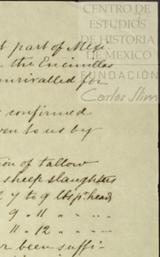 CENTRO DE
ESTUDIOS
DE HISTORIA
DE MEXICO
FUNDACIÓN
Carlos Slim
t part of Mexi
the Encinillas
unrivalled for
confirmed
ven to us by
tion of tallow
sheep slaughter
7 to 9 lbs p^r head
9 - 11 " " "
11 - 12 " " "
r been suffi-